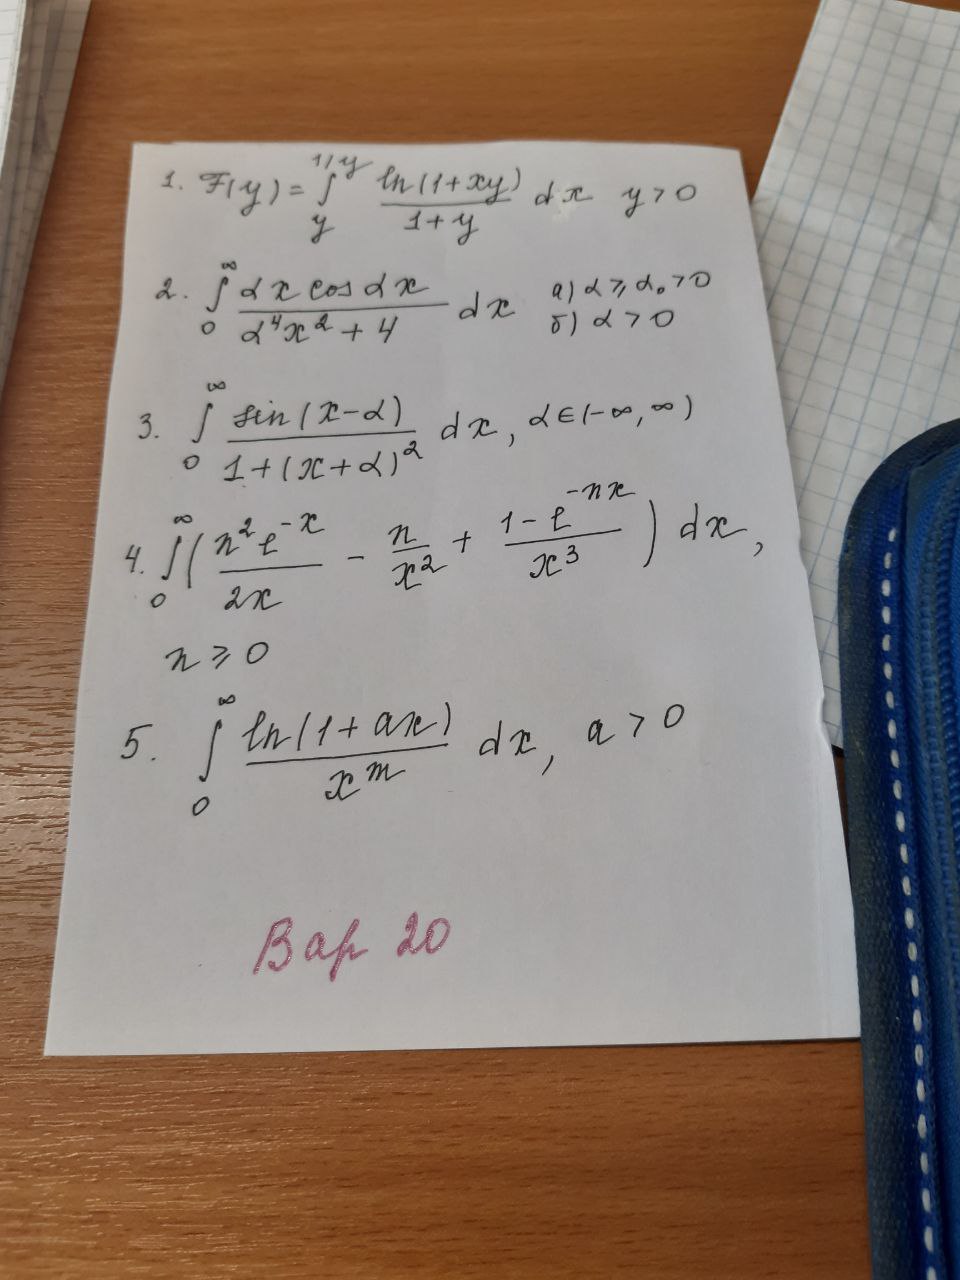 1. F(y) = ∫_y^{1/y} ln(1+xy)/(1+y) dx y>0
2. ∫_0^∞ αx cos αx/(α^4x^2+4) dx а) α⩾α₀>0
б) α>0
3. ∫_0^∞ sin(x-α)/(1+(x+α)^2) dx, α∈(-∞,∞)
4. ∫_0^∞ (n^2e^{-x}/(2x) - n/x^2 + (1-e^{-nx})/x^3) dx,
n⩾0
5. ∫_0^∞ ln(1+ax)/x^m dx, a>0
Вар 20